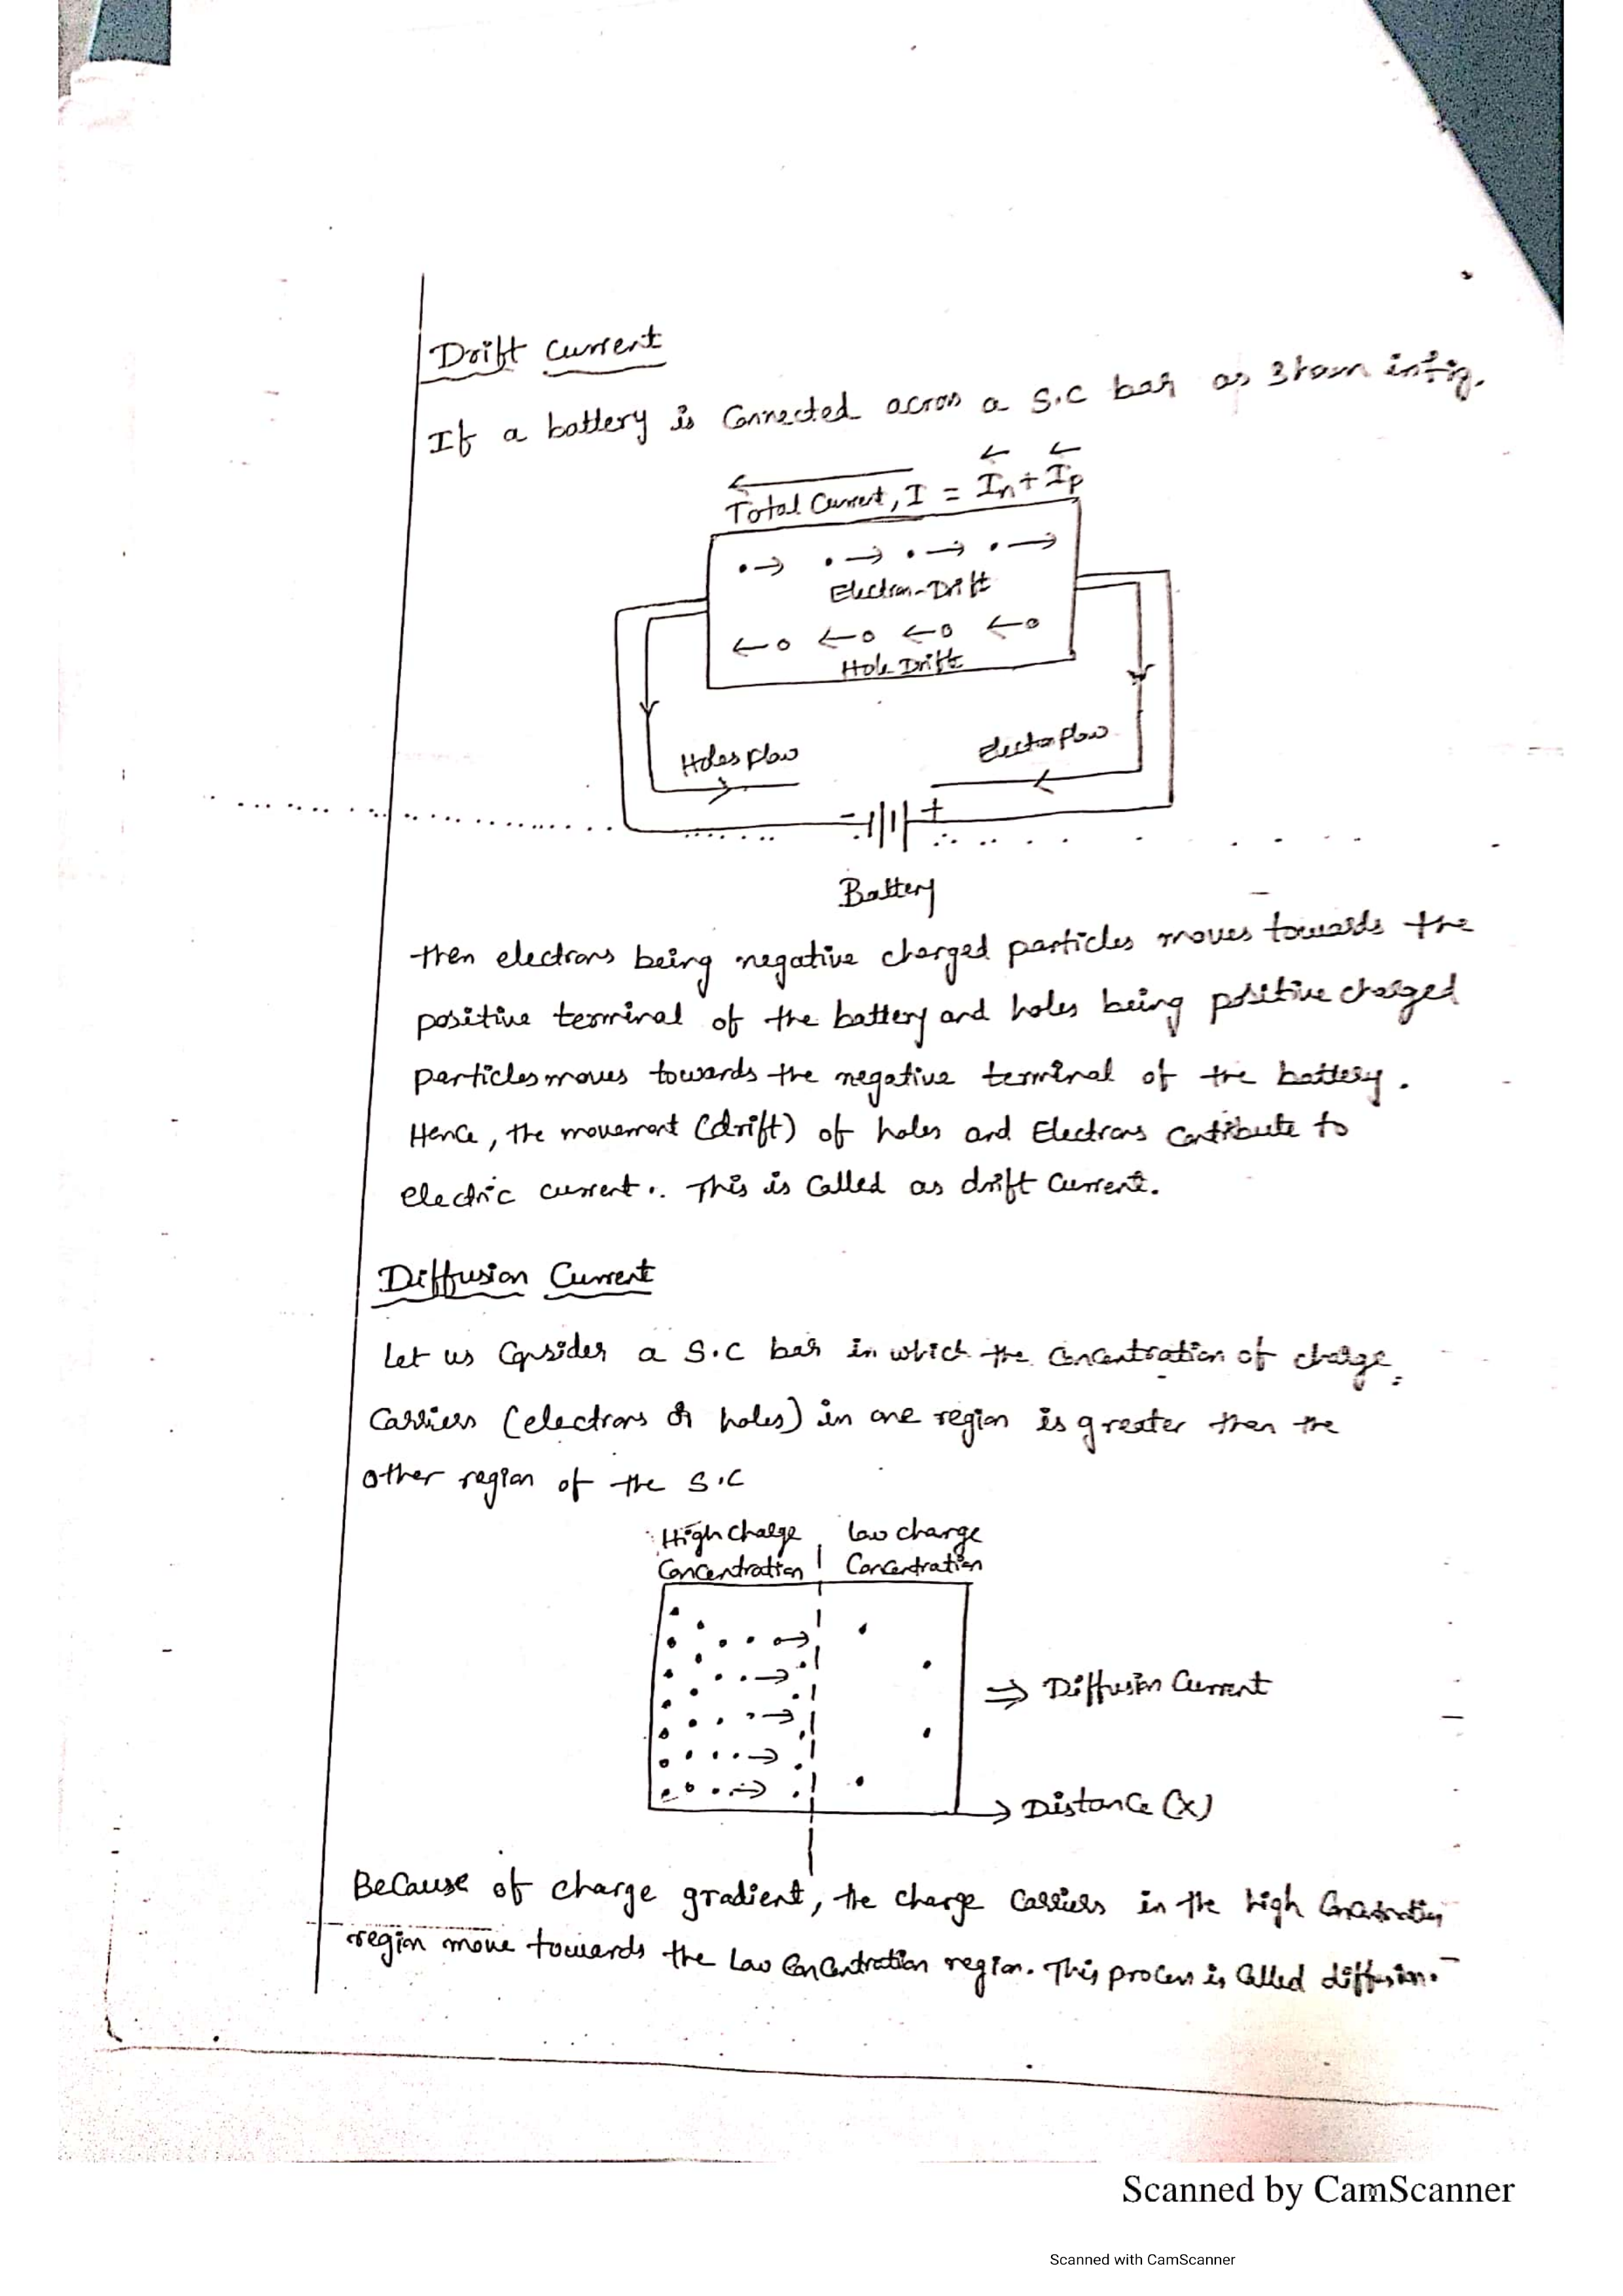 Drift Current
If a battery is Connected across a S.C bar as shown in fig.
Total Current, I = In + Ip
Electron-Drift
Hole Drift
Holes flow
Electron flow
- +
Battery
then electrons being negative charged particles moves towards the
positive terminal of the battery and holes being positive charged
particles moves towards the negative terminal of the battery.
Hence, the movement (drift) of holes and Electrons contribute to
electric current. This is called as drift current.
Diffusion Current
Let us Consider a S.C bar in which the concentration of charge
carriers (electrons or holes) in one region is greater then the
other region of the S.C
High charge Low charge
Concentration Concentration
⇒ Diffusion Current
→ Distance (x)
Because of charge gradient, the charge carriers in the high Concentration
region move towards the Low Concentration region. This process is called diffusion.
Scanned by CamScanner
Scanned with CamScanner